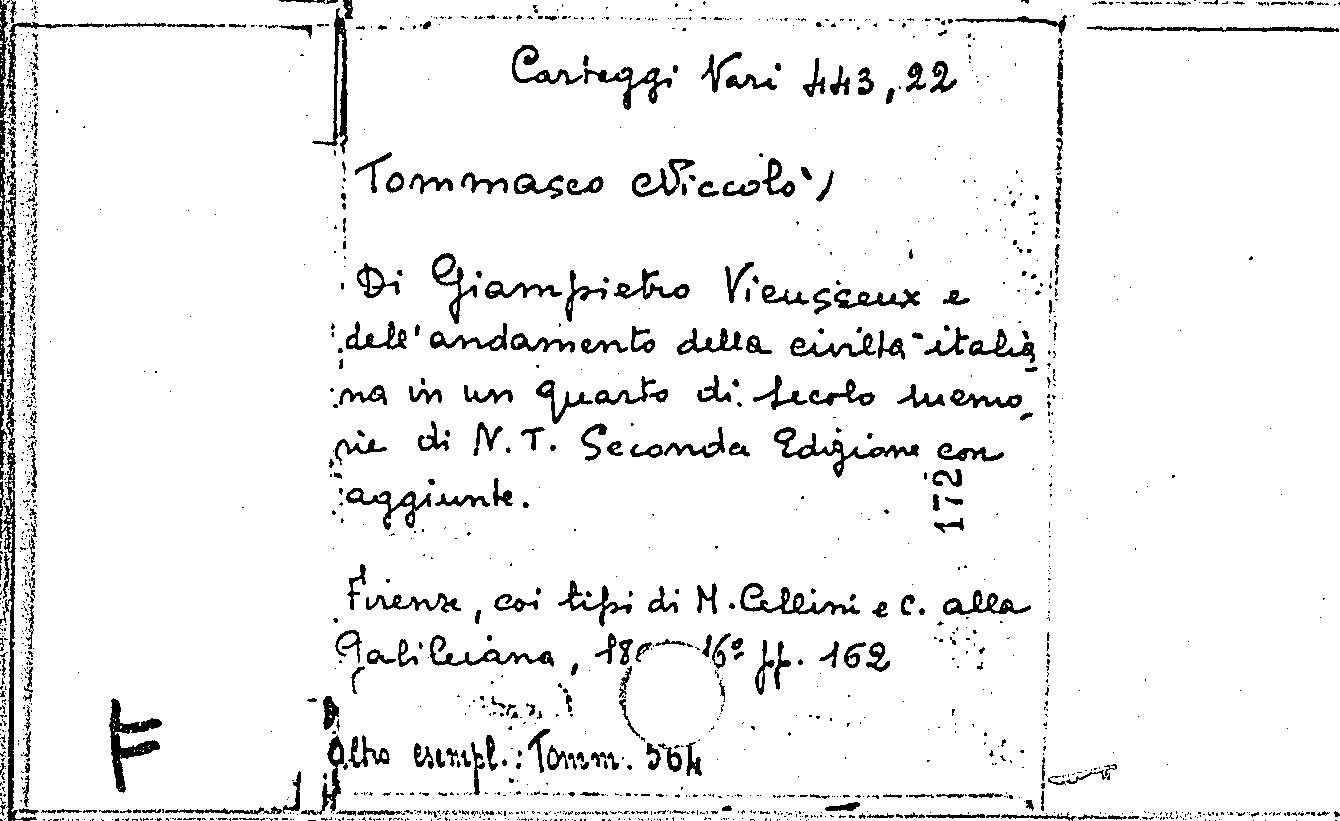 Carteggi Vari 443,22
Tommaseo Niccolò,
Di Giampietro Vieusseux e
dell'andamento della civiltà italia
na in un quarto di secolo memo
rie di N. T. Seconda Edizione con
aggiunte.
172
Firenze, coi tipi di M. Cellini e C. alla
Galileiana, 16º pp. 162
Altro esempl.: Tomm. 564
F